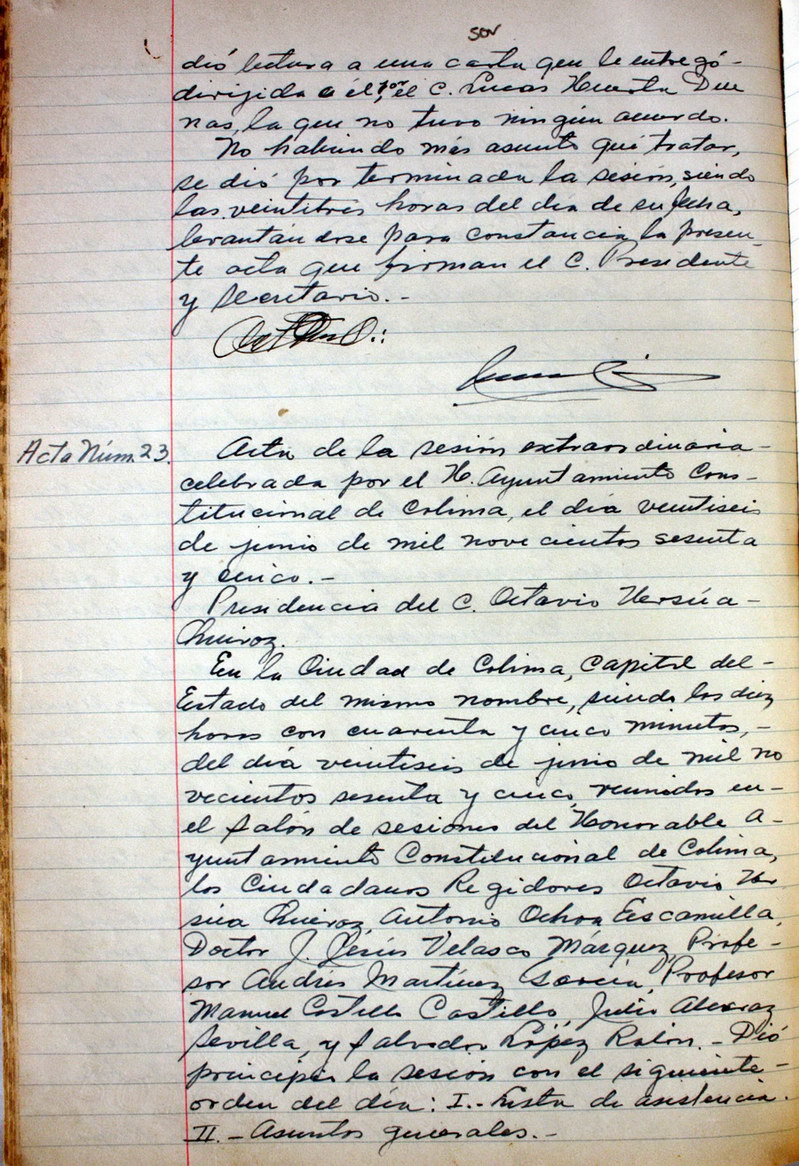 dió lectura a una carta que le entregó-
dirigida a él, por el C. Lucas Huerta Due
nas, la que no tuvo ningún acuerdo.
No habiendo más asunto qué tratar,
se dió por terminada la sesión, siendo
las veintitrés horas del día de su fecha,
levantándose para constancia la presen-
te acta que firman el C. Presidente
y Secretario.-
Acta Núm. 23.
Acta de la sesión extraordinaria-
celebrada por el H. Ayuntamiento Cons-
titucional de Colima, el día veintiseis
de junio de mil novecientos sesenta
y cinco.-
Presidencia del C. Octavio Ursúa-
Quiroz.
En la Ciudad de Colima, Capital del-
Estado del mismo nombre, siendo las diez
horas con cuarenta y cinco minutos,-
del día veintiseis de junio de mil no
vecientos sesenta y cinco, reunidos en-
el salón de sesiones del Honorable A-
yuntamiento Constitucional de Colima,
los Ciudadanos Regidores Octavio Ur
súa Quiroz, Antonio Ochoa Escamilla,
Doctor J. Jesús Velasco Márquez, Profe-
sor Andrés Martínez García, Profesor
Manuel Castillo Castillo, Julio Alcaraz
Sevilla, y Salvador López Rolón.- Dió
principio la sesión con el siguiente-
orden del día: I.- Lista de asistencia.
II.- Asuntos generales.-